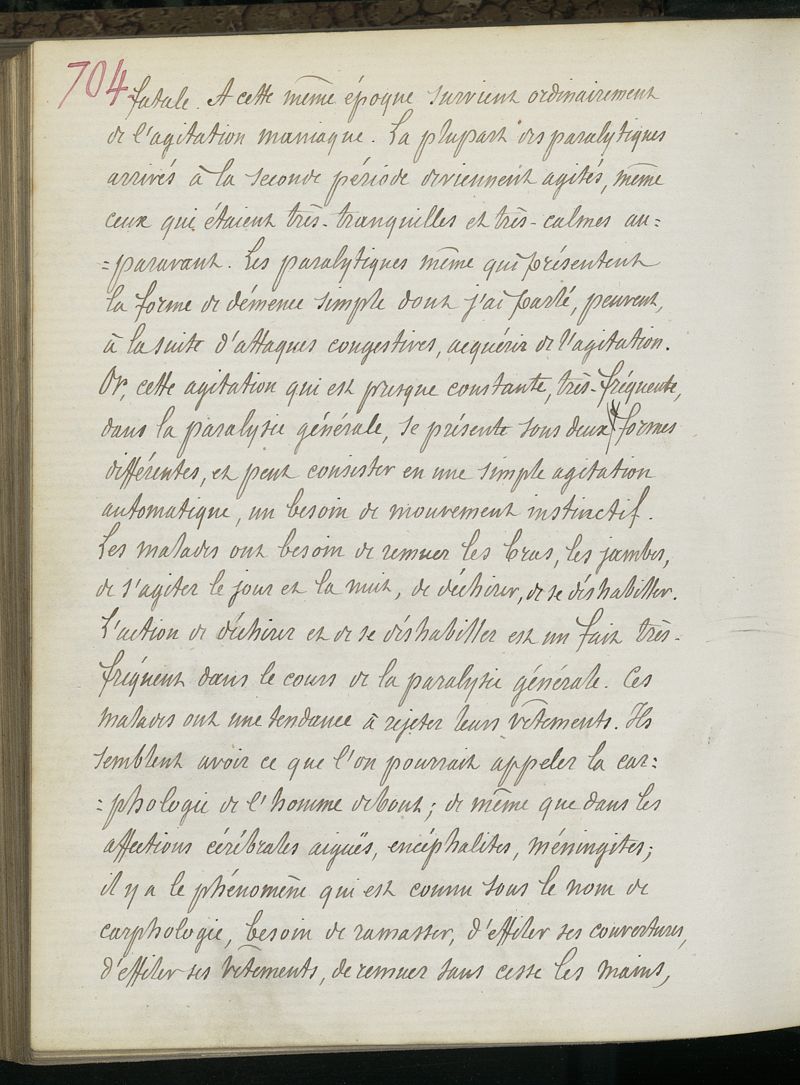 704
fatale. A cette même époque survient ordinairement
de l'agitation maniaque. La plupart des paralytiques
arrivés à la seconde période deviennent agités, même
ceux qui étaient très-tranquilles et très-calmes au=
=paravant. Les paralytiques même qui présentent
la forme de démence simple dont j'ai parlé, peuvent,
à la suite d'attaques congestives, acquérir de l'agitation.
Or, cette agitation qui est presque constante, très-fréquente,
dans la paralysie générale, se présente sous deux formes
différentes, et peut consister en une simple agitation
automatique, un besoin de mouvement instinctif.
Les malades ont besoin de remuer les bras, les jambes,
de s'agiter le jour et la nuit, de déchirer, de se déshabiller.
L'action de déchirer et de se déshabiller est un fait très-
fréquent dans le cours de la paralysie générale. Ces
malades ont une tendance à rejeter leurs vêtements. Ils
semblent avoir ce que l'on pourrait appeler la car=
=phologie de l'homme debout ; de même que dans les
affections cérébrales aiguës, encéphalites, méningites ;
il y a le phénomène qui est connu sous le nom de
carphologie, besoin de ramasser, d'effiler ses couvertures,
d'effiler ses vêtements, de remuer sans cesse les mains,